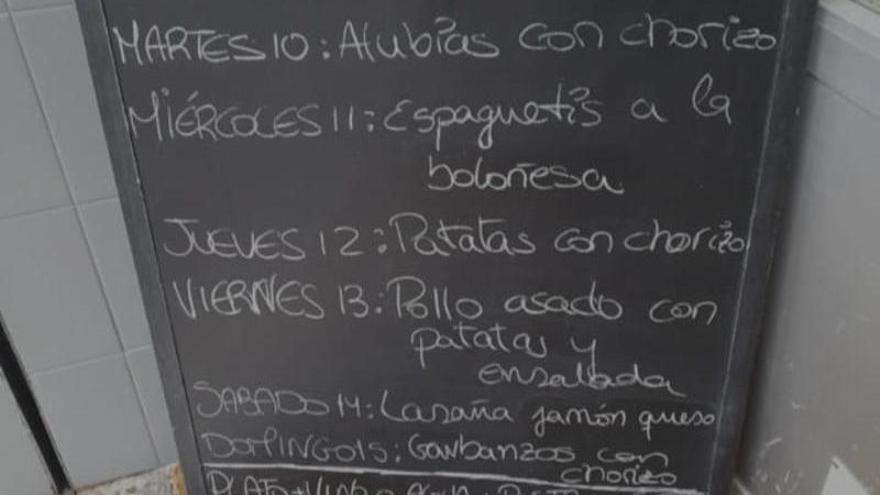 MARTES 10: Alubias con chorizo
MIÉRCOLES 11: Espaguetis a la
boloñesa
JUEVES 12: Patatas con chorizo
VIERNES 13: Pollo asado con
patatas y
ensalada
SABADO 14: Lasaña jamón queso
DOMINGO 15: Garbanzos con
chorizo
PLATO + VINO o AGUA